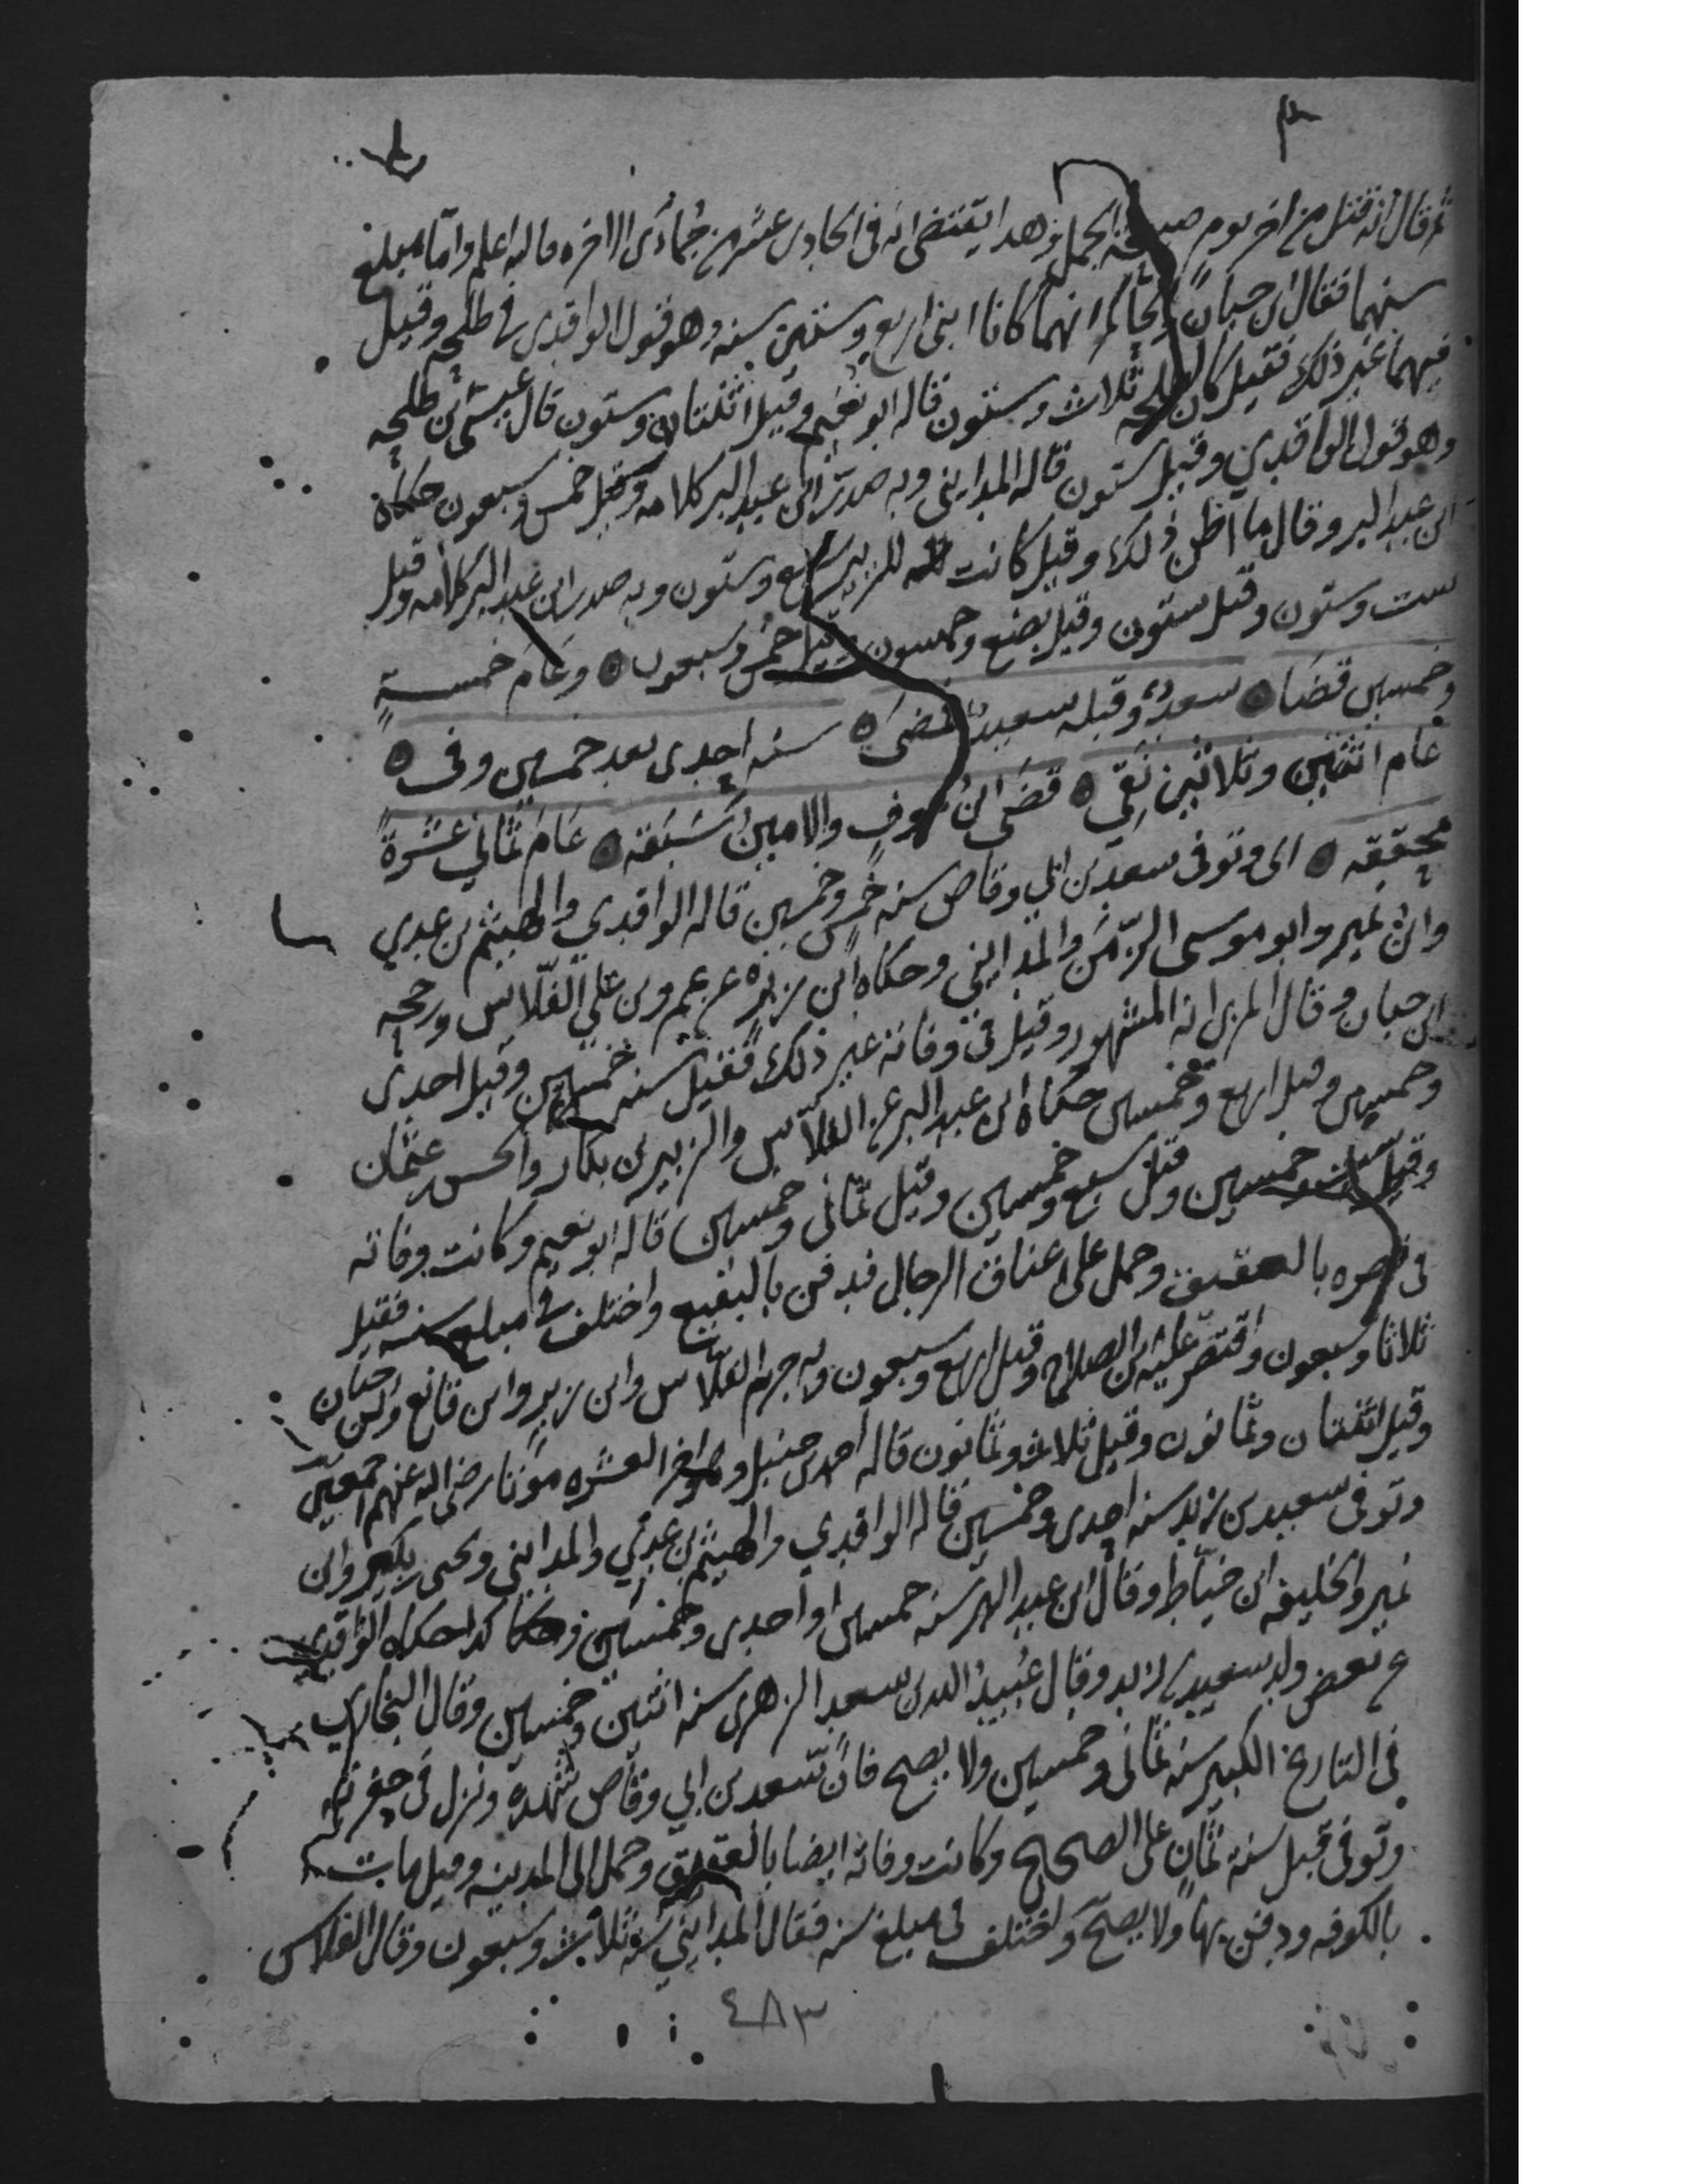 ثم قال انه قتل من اخر يوم صبيحة الجمل وهذا يقتضي انه في الحادي عشر من جمادى الاخره فالله اعلم واما مبلغ
سنهما فقال ابن حبان والحاكم انهما كانا ابنى اربع وستين سنه وهو قول الواقدي في طلحه وقيل
فيهما غير ذلك فقيل كان لطلحه ثلاث وستون قاله ابو نعيم وقيل اثنتان وستون قال عيسى بن طلحه
وهو قول الواقدي وقيل ستون قاله المدايني وبه صدر ابن عبد البر كلامه وقيل خمس وسبعون حكاه
ابن عبد البر وقال ما اظن ذلك وقيل كانت للزبير سبع وستون وبه صدر ابن عبد البر كلامه وقيل
ست وستون وقيل ستون وقيل بضع وخمسون وقيل خمس وسبعون وعام خمسة
وخمسين قضا سعد وقبله سعيد فمضى سنه احدى بعد خمسين وفى
عام اثنتين وثلاثين تفي قضى ابن عوف والامين سبقه عام ثماني عشرة
محققه اى وتوفى سعد بن ابي وقاص سنه خمس وخمسين قاله الواقدي والهيثم بن عدي
وابن نمير وابو موسى الزمن والمدايني وحكاه ابن زبر عن عمرو بن علي الفلاس ورجحه
ابن حبان وقال المزى انه المشهور وقيل في وفاته غير ذلك فقيل سنه خمسين وقيل احدى
وخمسين وقيل اربع وخمسين حكاه ابن عبد البر عن الفلاس والزبير بن بكار والحسن بن عثمان
وقيل ست وخمسين وقيل سبع وخمسين وقيل ثمانى وخمسين قاله ابو نعيم وكانت وفاته
في قصره بالعقيق وحمل على اعناق الرجال فدفن بالبقيع واختلف في مبلغ سنه فقيل
ثلاثا وسبعون واقتصر عليه ابن الصلاح وقيل اربع وسبعون وبه جزم الفلاس وابن زبر وابن قانع وابن حبان
وقيل اثنتان وثمانون وقيل ثلاث وثمانون قاله احمد بن حنبل وهو اخر العشره موتا رضى الله عنهم اجمعين
وتوفى سعيد بن زيد سنه احدى وخمسين قاله الواقدي والهيثم بن عدي والمدايني ويحيى بن بكير وابن
نمير وخليفه ابن خياط وقال ابن عبد البر سنه خمسين او احدى وخمسين وكذا حكاه الواقدي
عن بعض ولد سعيد بن زيد وقال عبيد الله بن سعد الزهرى سنه اثنتين وخمسين وقال البخاري
في التاريخ الكبير سنه ثمانى وخمسين ولا يصح فان سعد بن ابي وقاص شهده ونزل في حفرته
وتوفى قبل سنة ثمان على الصحيح وكانت وفاته ايضا بالعقيق وحمل الى المدينه وقيل مات
بالكوفه ودفن بها ولا يصح واختلف في مبلغ سنه فقال المدايني سنه ثلاث وسبعون وقال الفلاس
٤٨٣